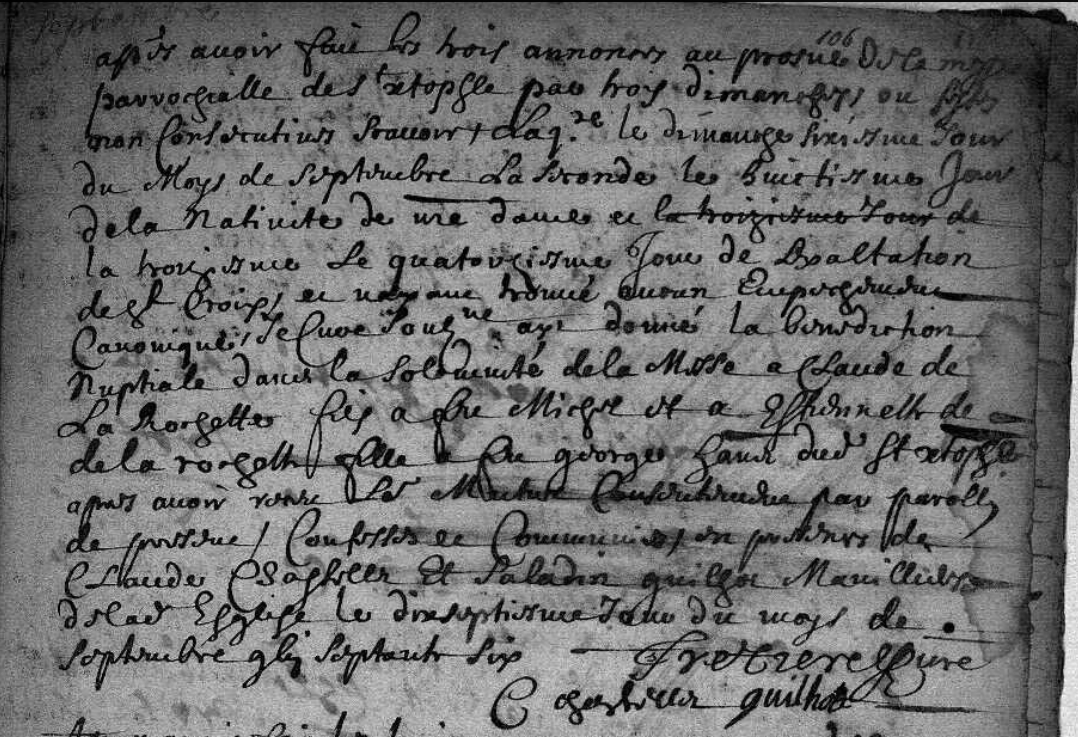 Septembre
106
après avoir fait les trois annonces au prosne de la messe
parrochialle de St xtophle par trois dimanches ou festes
non Consecutives scavoir la le dimanche sixiesme Jour
du Moys de Septembre La seconde le huictiesme Jour
de la Nativité de nre dame et la troiziesme Jour de
la troiziesme Le quatorziesme Jour de Lexaltation
de Ste Croix, et nayant trouvé aucun Empechement
Canonique, Je Curé soubne ay donné la benediction
Nuptiale dans la solemnité de la Messe a Claude de
La Rochette fils a feu Michel et a Estiennette de
de la rochette fille a feu george dud St xtophle
apres avoir receu Le Mutuel Consentement par parolles
de present, Confesses et Communies, en presence de
Claude Chasteller Et Paladin quilhot Marilliers
de lad Esglise le dixseptiesme Jour du moys de
septembre septante six
Curé
C quilhot